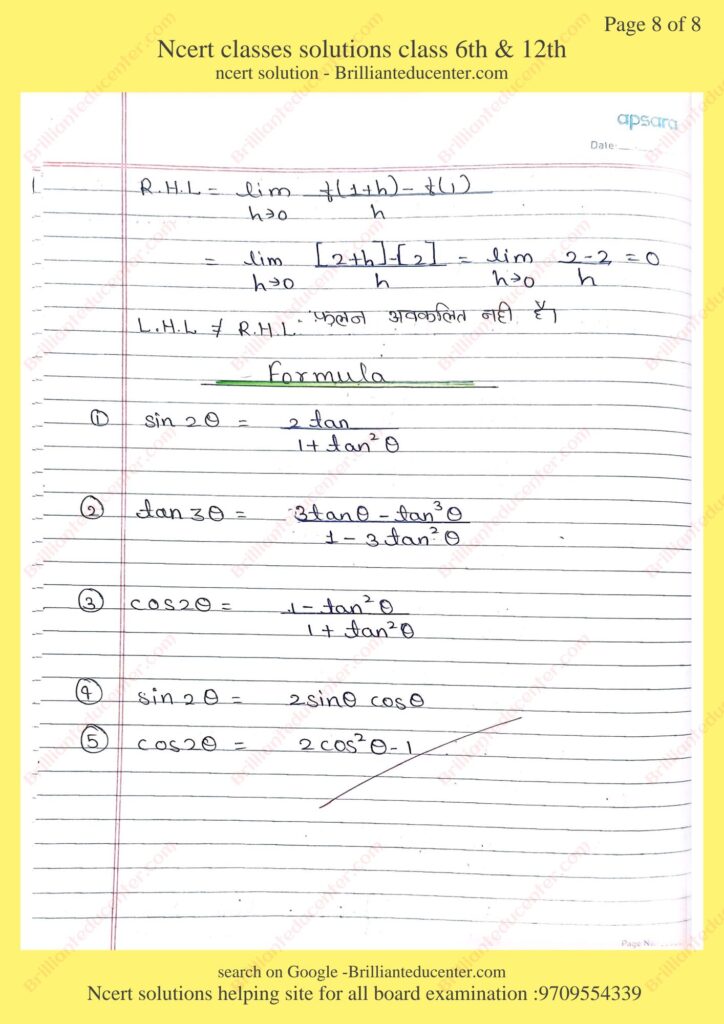 Page 8 of 8
Ncert classes solutions class 6th & 12th
ncert solution - Brillianteducenter.com
apsara
Date:
R.H.L = lim f(1+h) - f(1)
h→0 h
= lim [2+h]-[2] = lim 2-2 = 0
h→0 h h→0 h
L.H.L ≠ R.H.L फलन अवकलित नही है।
Formula
① sin 2θ = 2 tan
1 + tan²θ
② tan 3θ = 3tanθ - tan³θ
1 - 3tan²θ
③ cos2θ = 1 - tan²θ
1 + tan²θ
④ sin 2θ = 2sinθ cosθ
⑤ cos2θ = 2cos²θ-1
Page No.
search on Google -Brillianteducenter.com
Ncert solutions helping site for all board examination :9709554339